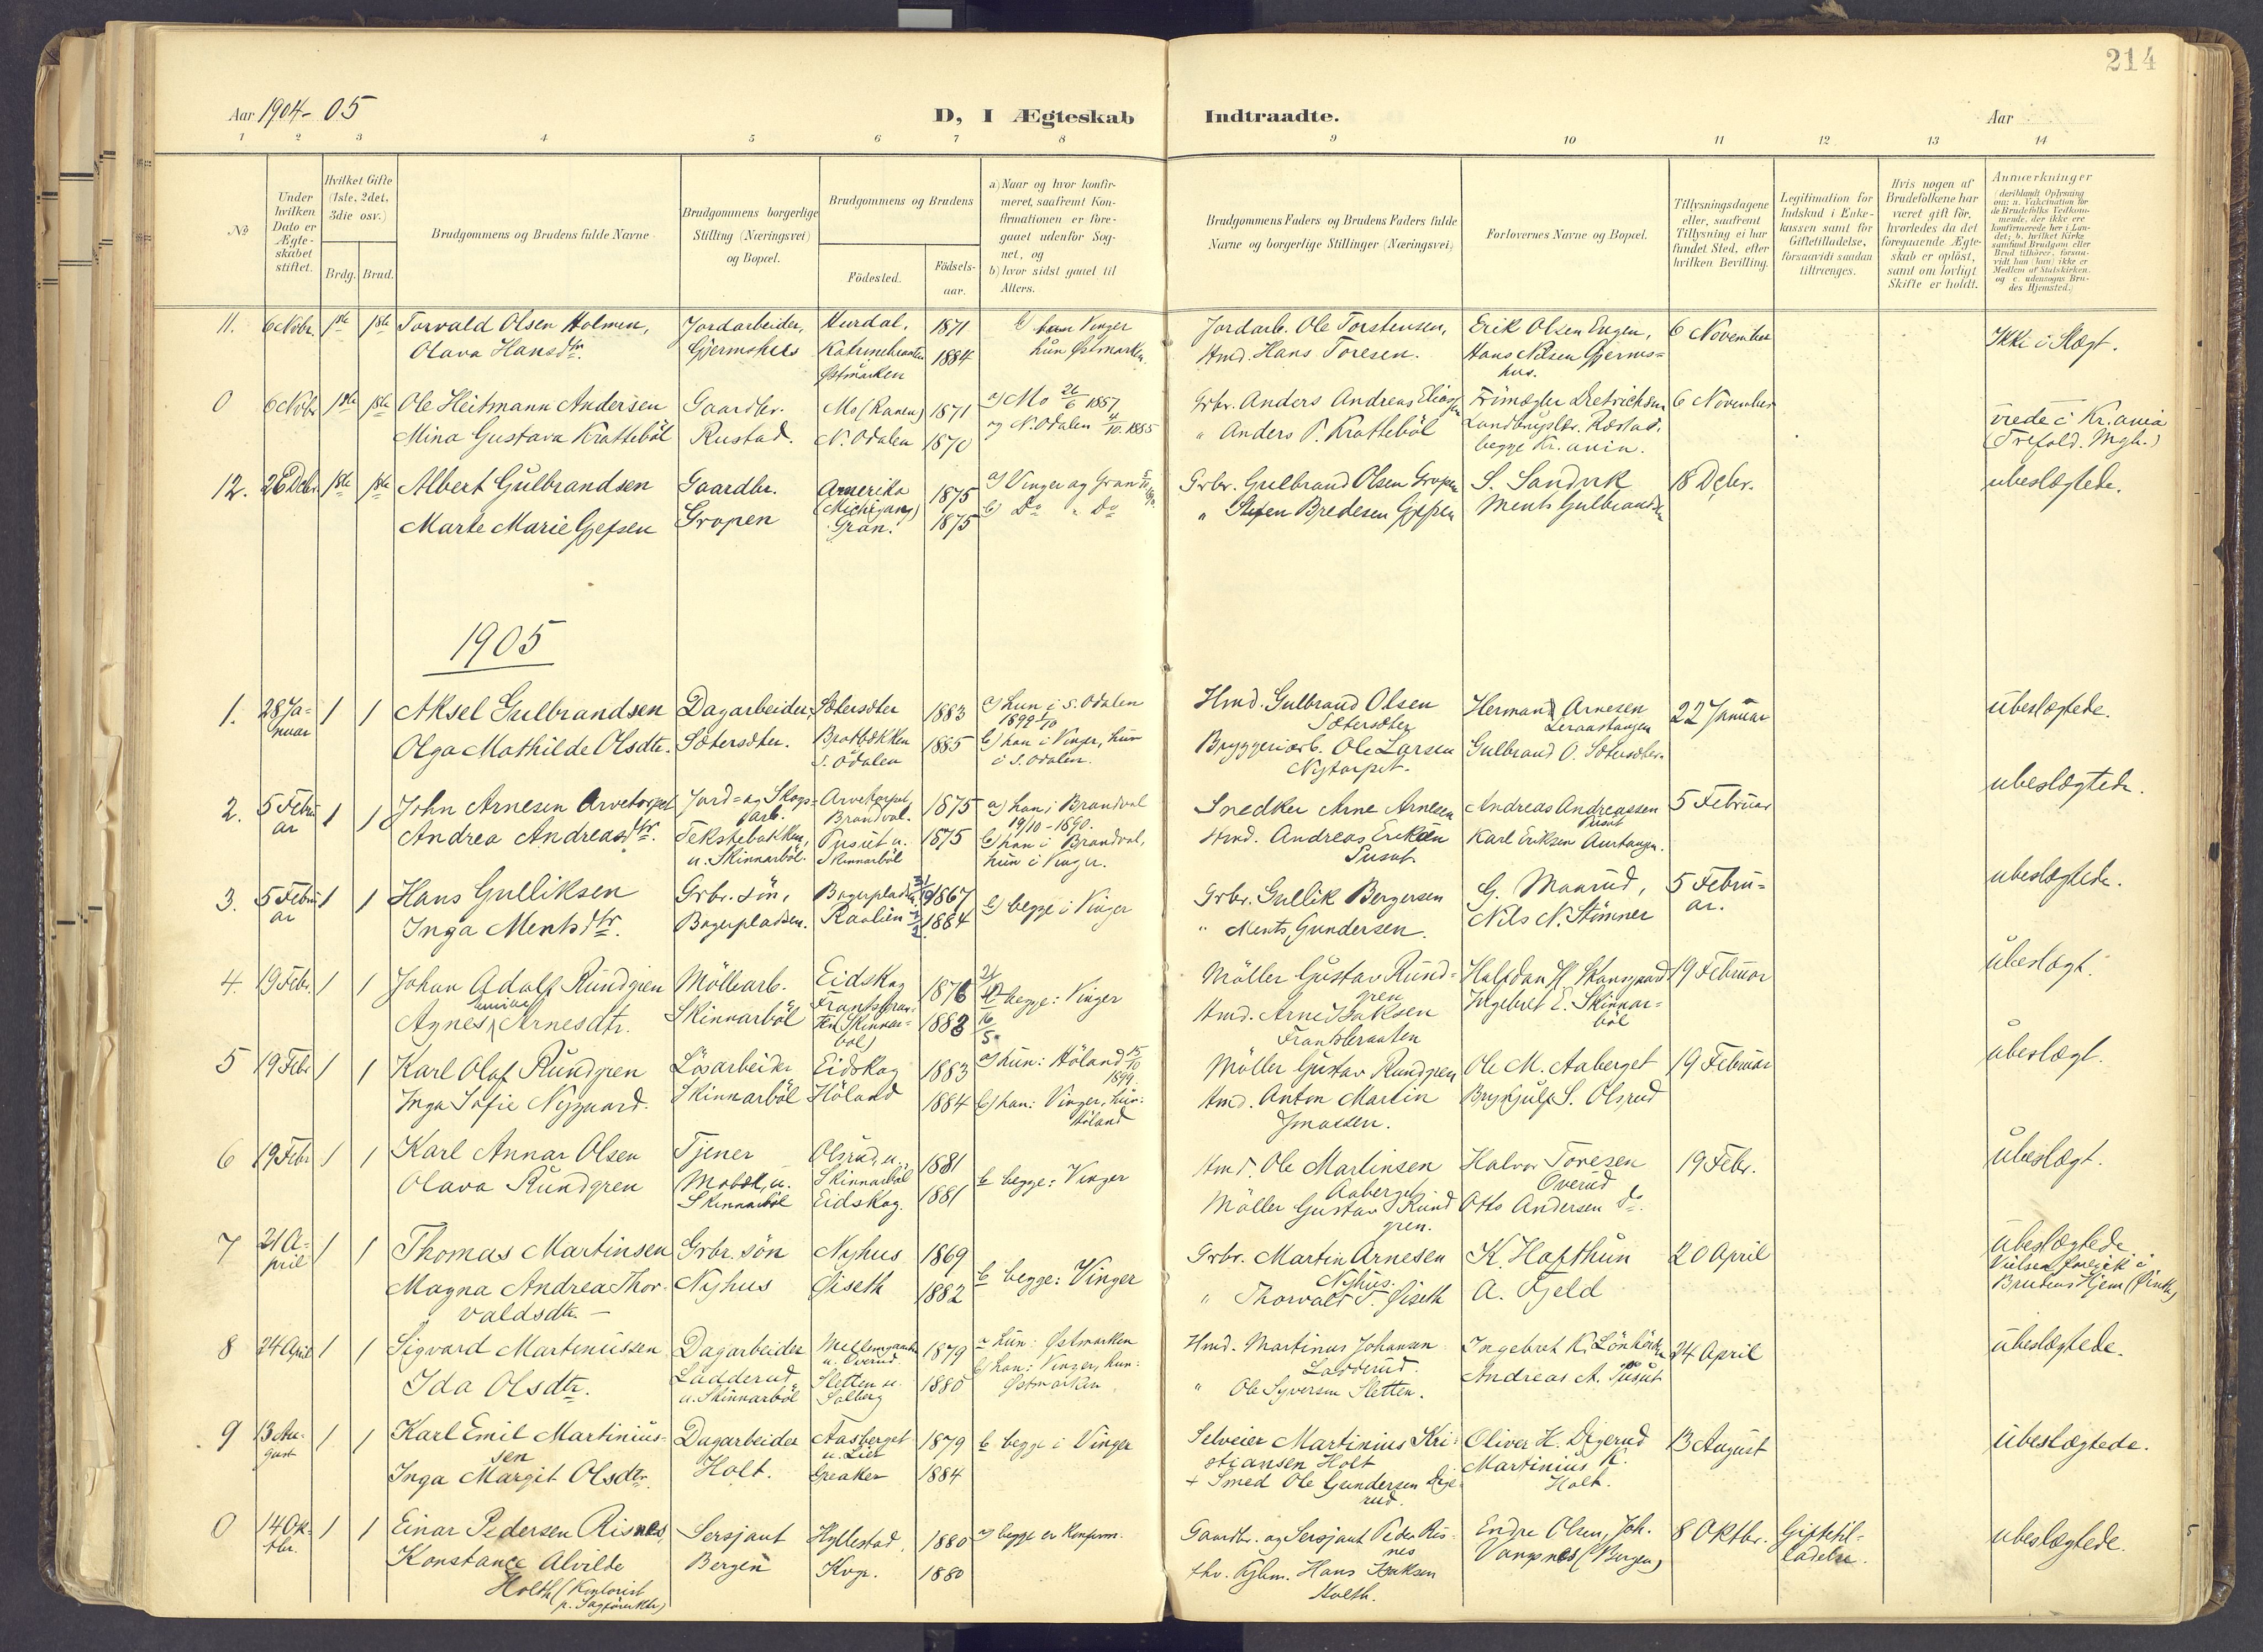 214
Aar 1904-05
D, I Ægteskab Indtraadte.
Aar
1 2 3 4 5 6 7 8 9 10 11 12 13 14
No
Under hvilken Dato er Ægteskabet stiftet.
Hvilket Gifte (1ste, 2det, 3die osv.)
Brdg. Brud.
Brudgommens og Brudens fulde Navne
Brudgommens borgerlige Stilling (Næringsvei) og Bopæl.
Brudgommens og Brudens
Födested.
Födselsaar.
a) Naar og hvor konfirmeret, saafremt Konfirmationen er foregaaet udenfor Sognet, og
b) hvor sidst gaaet til Alters.
Brudgommens Faders og Brudens Faders fulde Navne og borgerlige Stillinger (Næringsvei)
Forlovernes Navne og Bopæl.
Tillysningsdagene eller, saafremt Tillysning ei har fundet Sted, efter hvilken Bevilling.
Legitimation for Indskud i Enkekassen samt for Giftetilladelse, forsaavidt saadan tiltrænges.
Hvis nogen af Brudefolkene har været gift för, hvorledes da det foregaaende Ægteskab er oplöst, samt om lovligt Skifte er holdt.
Anmærkninger (deriblandt Oplysning om: a. Vakcination for de Brudefolks Vedkommende, der ikke ere konfirmerede her i Landet; b. hvilket Kirkesamfund Brudgom eller Brud tilhörer, forsaavidt han (hun) ikke er Medlem af Statskirken, og c. udensogns Brudes Hjemsted.)
11. 6 Novbr. 1ste 1ste Torvald Olsen Holmen, Jordarbeider, Hurdal. 1871 b) han Vinger Jordarb. Ole Torstensen, Erik Olsen Engen, 6 November Ikke i Slægt.
Olava Hansdtr. Gjermshus Katrinebraaten Østmarken 1884 hun Østmarken. Hmd. Hans Toresen. Hans Nilsen Gjermshus.
0 6 Novbr 1ste 1ste Ole Heitmann Andersen Gaardbr. Mo (Ranen) 1871 a) Mo 26/6 1887 Grbr. Anders Andreas Eliassen Dietrichsen 6 November
Mina Gustava Krattebøl Rustad. N. Odalen 1870 og N. Odalen 4/10. 1885 " Anders P. Krattebøl begge Kr.ania. viede i Kr.ania (Trefold. Mgh.)
12. 26 Debr. 1ste 1ste Albert Gulbrandsen Gaardbr. Amerika (Michigang) 1875 a) Vinger og Gran Grbr. Gulbrand Olsen Gropen S. Sandvik 18 Debr. ubeslægtede.
Marte Marie Gjefsen Gropen Gran. 1875 b) Do " Do " Steffen Bredesen Gjefsen Ments Gulbrandsen
1905
1. 28 Januar 1 1 Aksel Gulbrandsen Dagarbeider, Sætersæter 1883 a) hun i S. Odalen 1899 1/10 Hmd. Gulbrand Olsen Sætersæter Herman Arnesen 22 Januar ubeslægtede.
Olga Mathilde Olsdtr. Sætersæter. Bratbækken S. Odalen 1885 b) han i Vinger, hun i S. Odalen. Bryggeriarb. Ole Larsen Nytorpet. Gulbrand O. Sætersæter.
2. 5 Februar 1 1 John Arnesen Arvetorpet Jord- og Skogsarb. Arvetorpet, Brandval. 1875 a) han i Brandval 19/10-1890. Snedker Arne Arnesen Andreas Andreassen Pusut 5 Februar ubeslægtede.
Andrea Andreasdtr. u. Skinnarböl. Pusut u. Skinnarböl 1875 b) han i Brandval, hun i Vinger. Hmd. Andreas Eriksen Pusut. Karl Eriksen Aurtangen.
3. 5 Februar 1 1 Hans Gulliksen Grbr. sön, Bagerpladsen 1867 b) begge i Vinger Grbr. Gullik Bergersen G. Manrud, 5 Februar. ubeslægtede.
Inga Mentsdtr. Bagerpladsen. 1884 " Ments Gundersen. Nils N. Stömner
4. 19 Febr. 1 1 Johan Adolf Rundgren Möllearb. Eidskog 1876 b) begge: Vinger Möller Gustav Rundgren Halfdan H. Skansgaard 19 Februar ubeslægt.
Agnes Arnesdtr. Skinnarböl Frantsbraaten (Skinnarböl) 1883 16/5 Hmd. Arne Isaksen Frantsbraaten Ingebret E. Skinnarböl
5 19 Febr 1 1 Karl Olaf Rundgren Lösarbeider Eidskog 1883 a) hun: Höland 15/10 1899. Möller Gustav Rundgren Ole M. Aaberget 19 Februar ubeslægt.
Inga Sofie Nygaard. Skinnarböl Höland 1884 b) han: Vinger, hun: Höland Hmd. Anton Martin Jonassen. Brynjulf S. Olsrud
6 19 Febr 1 1 Karl Annar Olsen Tjener Olsrud u. Skinnarböl 1881 b begge: Vinger Hmd. Ole Martinsen Aaberget Halvor Toresen Överud 19 Febr. ubeslægt.
Olava Rundgren u. Skinnarböl Eidskog. 1881 Möller Gustav Rundgren. Otto Andersen do.
7 21 April 1 1 Thomas Martinsen Grbr. sön Nyhus 1869 b begge: Vinger Grbr. Martin Arnesen Nyhus. K. Hafthun 20 April ubeslægtede
Magna Andrea Thorvaldsdtr. Nyhus Øiseth 1882 " Thorvald T. Øiseth A. Fjeld Vielsen foregik i Brudens Hjem
8 24 April 1 1 Sigvard Martinussen Dagarbeider u. Överud 1879 a hun: Østmarken Hmd. Martinus Johansen Ladderud. Ingebret K. 24 April ubeslægtede.
Ida Olsdtr. Ladderud u. Skinnarböl Sletten u. Solberg 1880 b) han: Vinger, hun: Østmarken " Ole Syversen Sletten. Andreas A. Pusut
9 13 August 1 1 Karl Emil Martiniussen Dagarbeider Aasberget u. Lier 1879 b. begge i Vinger Selveier Martinius Kristiansen Holt Oliver H. Digerud 13 August ubeslægtede.
Inga Margit Olsdtr. Holt. Greaker 1884 + Smed Ole Gundersen Digerud. Martinius K. Holt.
0 14 Oktbr. 1 1 Einar Pedersen Risnes, Sersjant Hyllestad, 1880 a) begge er konfirm. Gaardbr. og Sersjant Peder Risnes Endre Olsen, Joh. Vangsnes (Bergen) 8 Oktbr. Giftetilladelse. ubeslægtede.
Konstance Alvilde Holth (Kontorist p. Sagförerktr) Bergen Kvgr. 1880 fhv. Hans Isaksen Holth.